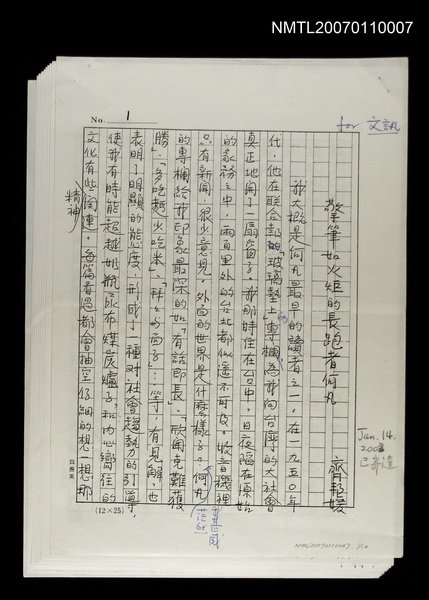 NMTL20070110007
No. 1
for 文訊
擎筆如火炬的長跑者何凡
齊邦媛
我大概是何凡最早的讀者之一。在一九五〇年
代，他在聯合報的「玻璃墊上」專欄為我向台灣的大社會
真正地開了一扇窗子。我那時住在台中，日夜陷在原始
的家務之中，兩百里外的台北都似遙不可及。收音機裡
只有新聞，很少意見，外面的世界是什麼樣子。何凡
的專欄給我印象最深的如「有話即長」、「欣聞克難獲
勝」、「多吃麵少吃米」、
等，有見解，也
表明了明顯的態度，形成了一種對社會趨勢力的引導，
使我有時能超越奶瓶尿布煤炭爐子，和內心嚮往的
文化有些關連。每篇看過都會抽空仔細的想一想那
精神
Jan. 14.
2003
已寄達
(12×25)
NMTL20070110007, 1/10